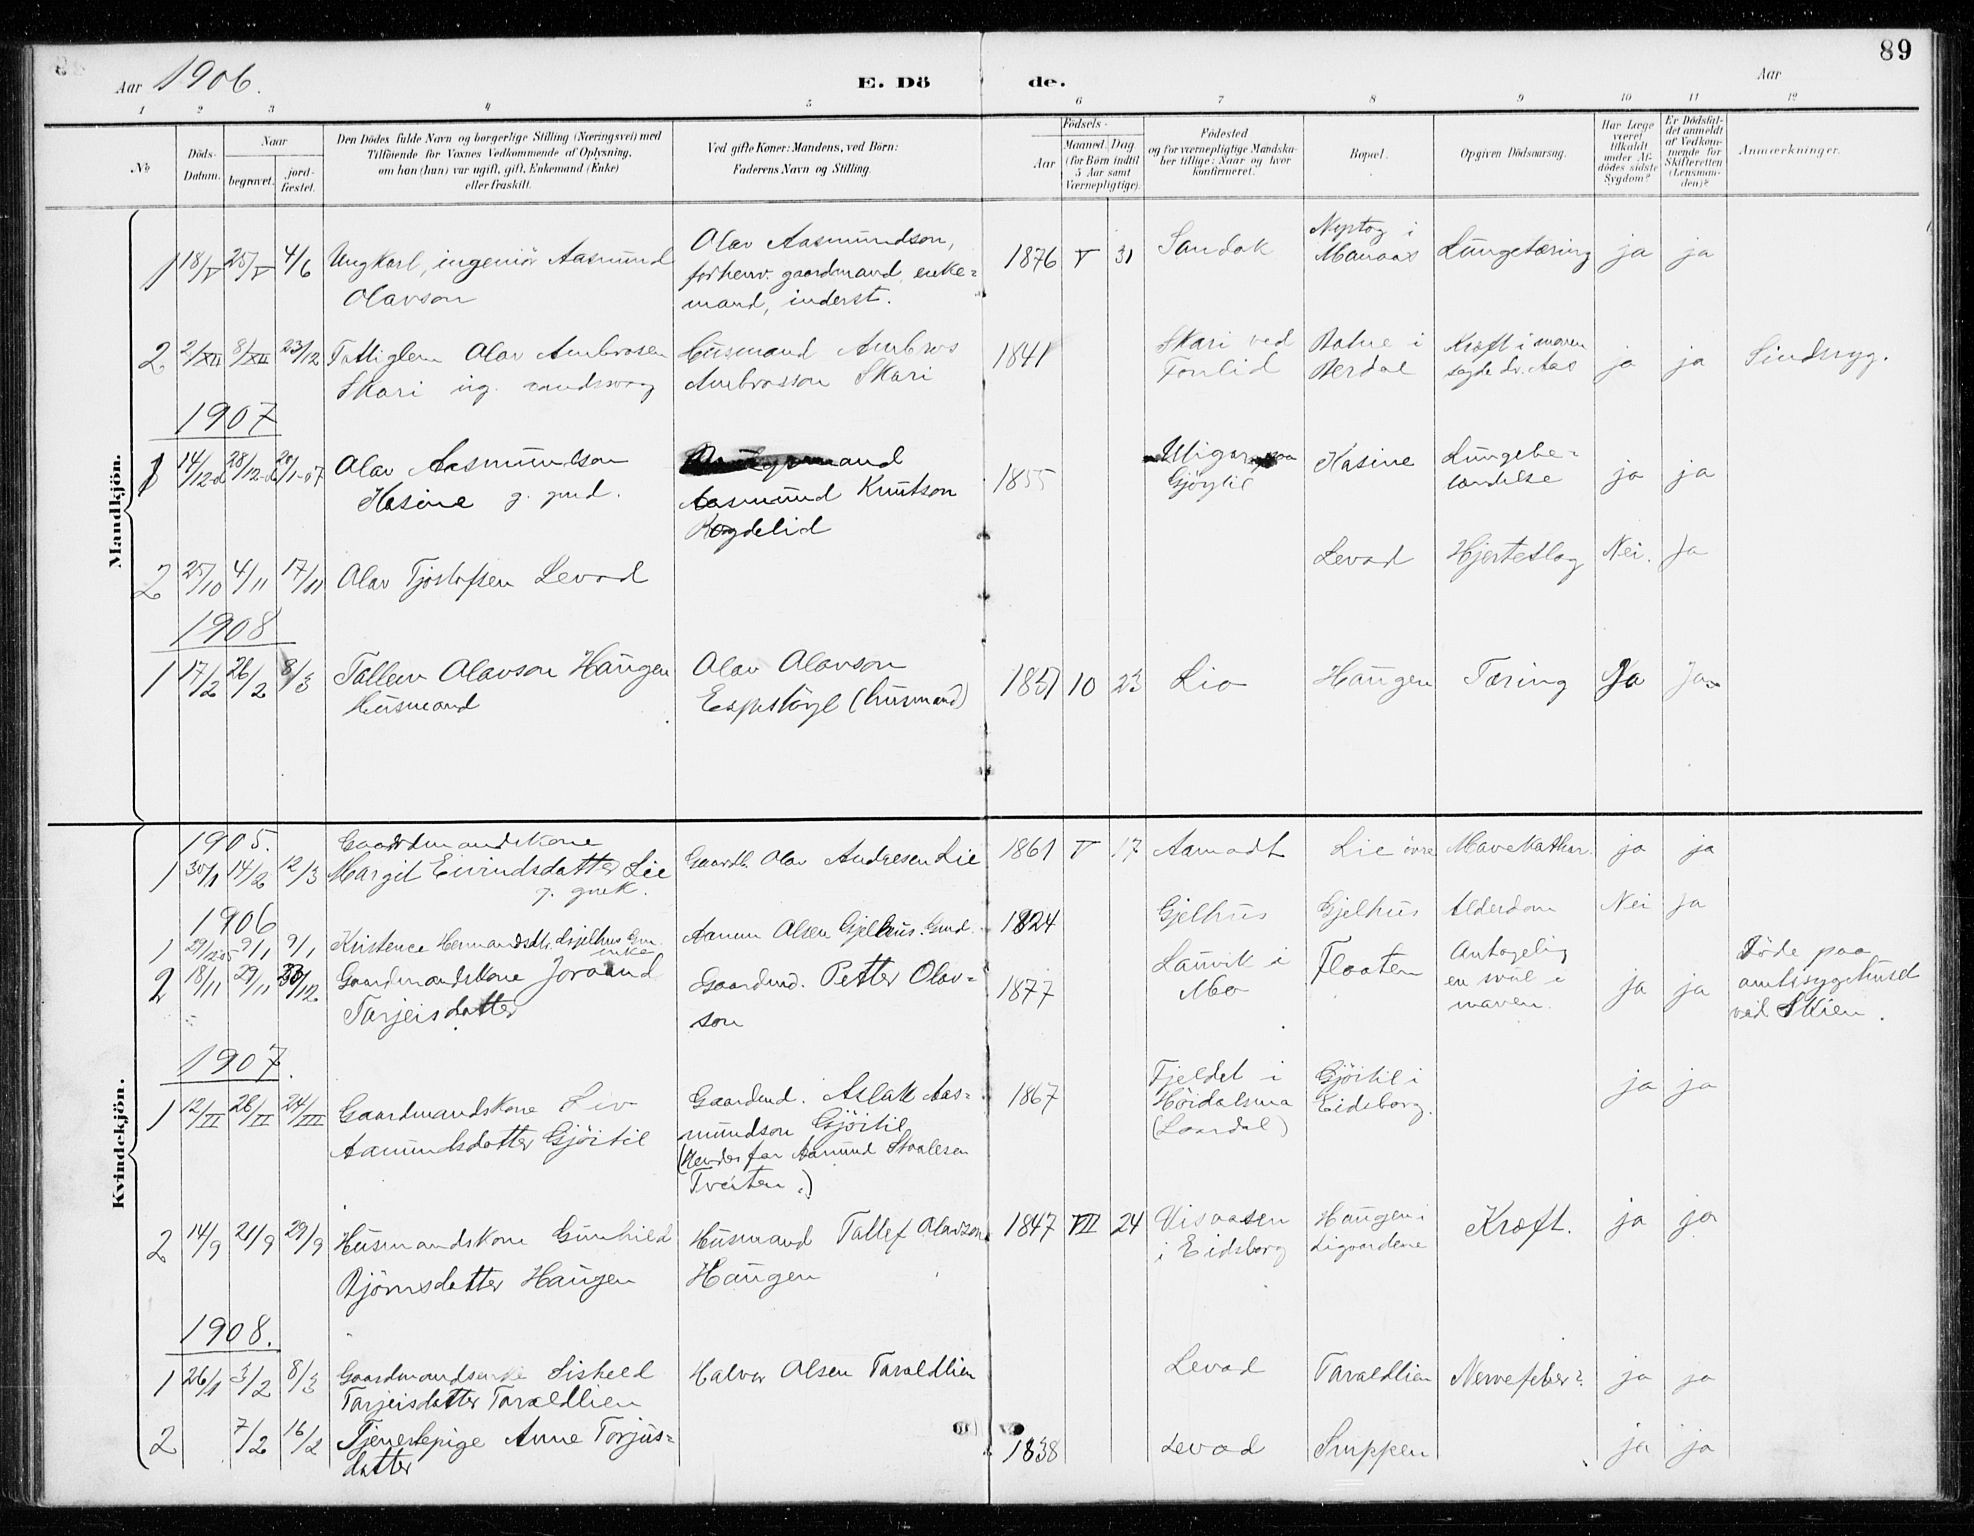 89
Aar 1906. E. Döde. Aar
1 2 3 4 5 6 7 8 9 10 11 12
No
Döds-Datum.
Naar
begravet.
jord-fæstet.
Den Dödes fulde Navn og borgerlige Stilling (Næringsvei) med
Tilföiende for Voxnes Vedkommende af Oplysning,
om han (hun) var ugift, gift, Enkemand (Enke)
eller fraskilt.
Ved gifte Koner: Mandens, ved Börn:
Faderens Navn og Stilling.
Födsels-
Aar
Maaned. Dag
(for Börn indtil
5 Aar samt
Værnepligtige).
Födested
og for værnepligtige Mandska-
ber tillige: Naar og hvor
konfirmeret.
Bopæl.
Opgiven Dödsaarsag.
Har Læge
været
tilkaldt
under Af-
dödes sidste
Sygdom?
Er Dödsfal-
det anmeldt
af Vedkom-
mende for
Skifteretten
(Lensman-
den)?
Anmærkninger.
Mandkjön.
1 18/V 25/V 4/6 Ungkarl, ingeniör Aasmund
Olavson
Olav Aasmundson,
forhenv. gaardmand, enke=
mand, inderst.
1876 V 31 Sandok
i
Manaas
Lungetæring ja ja
2 2/XII 8/XII 23/12 Olav Ambrosen
Skari ug.
Husmand Ambros
Ambrosson Skari
1841 Skari ved
i
Kræft i maven
sagde dr. Aas
ja ja Sindssyg.
1907
1 14/12 28/12 20/1-07 Olav Aasmundson
Kasine g. gmd.
Aasmund Knutson
1855
Kasine
Lungebe=
tændelse
ja ja
2 25/10 4/11 17/11 Olav Tjöstofsen Levad
Levad Hjerteslag Nei. Ja
1908
1 17/2 26/2 8/3 Tallev Olavson Haugen
Husmand
Olav Olavson
Espestöyl (husmand)
1851 10 23 Lio Haugen Tæring Ja Ja
Kvindekjön.
1905.
Gaardmandskone
1 30/1 14/2 12/3 Margit Eivindsdatter Lie
g. gmk.
Gaardb. Olav Andresen Lie
1861 V 17 Aamodt Lie övre Mavekathar. ja ja
1906
1 29/12 05 9/1 9/1 Kristence Hermandsdtr. Gjelhus Gm.
enke
Aanun Olsen Gjelhus. Gmd.
1824 Gjelhus Gjelhus Alderdom Nei Ja
2 18/11 29/11 23/12 Gaardmandskone Joraand
Tarjeisdatter
Gaardmd. Petter Olav=
son
1877 Lauvik i
Mo
Flaaten
Antagelig
en svul i
maven.
ja ja
Döde paa
amtssygehuset
ved Skien.
1907.
1 12/II 26/II 24/III Gaardmandskone Liv
Aamundsdatter Gjöitil
Gaardmd. Aslak Aas=
mundson Gjöitil
(Hendes far Aamund Staalesen
Tveiten.)
1867 Fjeldet i
Höidalsmo
(Laardal)
Gjöitil i
Eidsborg.
ja ja
2 14/9 21/9 29/9 Husmandskone Gunhild
Björnsdatter Haugen
Husmand Tallef Olavson
Haugen
1847 VII 24 Visaasen
i Eidsborg
Haugen i
Ligaardene
Kræft. ja ja
1908.
1 26/1 3/2 8/3 Gaardmandsenke Sishell
Tarjeisdatter Taraldlien
Halvor Olsen Taraldlien
Levad Taraldlien Nervefeber? ja ja
2 7/2 16/2 Tjenestepige Anne Torjus=
datter
1838 Levad ja ja